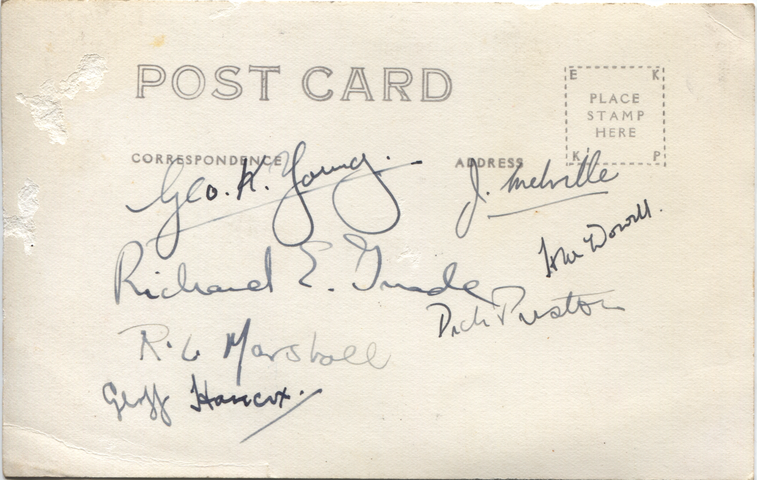 POST CARD
E K
PLACE
STAMP
HERE
K P
CORRESPONDENCE
ADDRESS
Geo. K. Young.
J. Melville
Richard E.
Dick Preston
Marshall
Geoff Hancox.